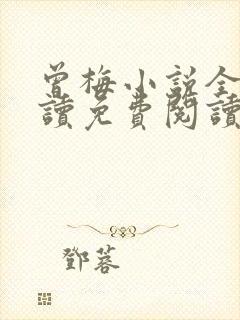 曾梅小説全
讀免費閱讀
鄧蓉